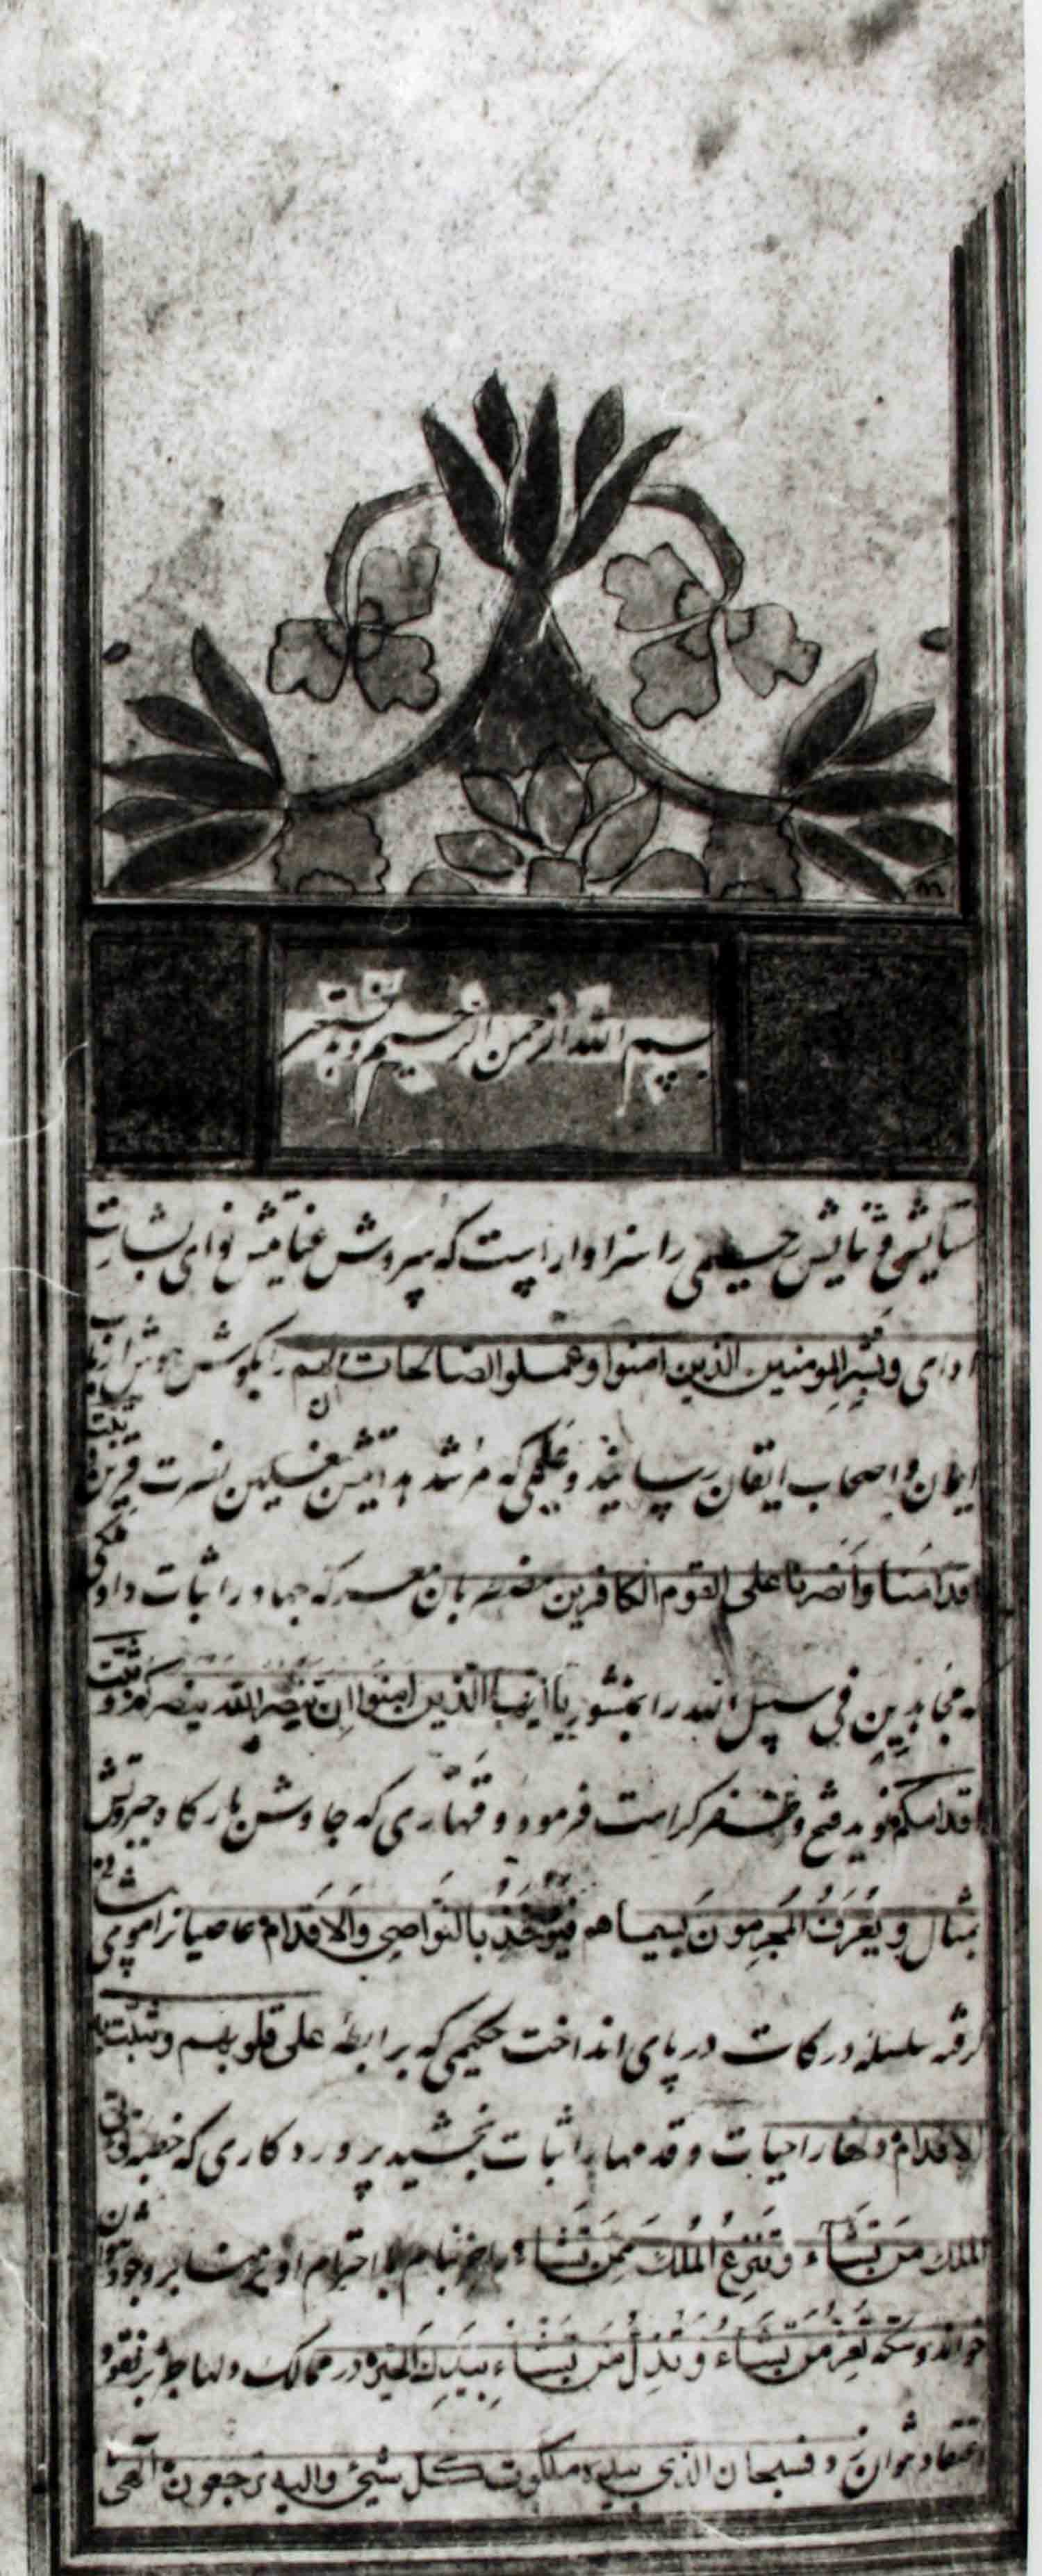 بسم الله الرحمن الرحیم و
ستایش و نیایش رحیمی را سزاوار است که سروش عنایتش نوای بشارت
ادای و بشر المومنین الذین امنوا وعملوا الصالحات ان لهم را بگوش هوش ارباب
ایمان و اصحاب ایقان رسانید و علیمی که مرشد هدایتش
قدامنا وانصرنا علی القوم الکافرین معرکه جهاد را ثبات داد و
مجاهدین فی سبیل الله را بمنشور یا ایها الذین امنوا ان تنصر الله ینصرکم و یثبت
قدامکم نوید فتح و ظفر کرامت فرمود و قهاری که جاوش بارکاه جبروتش
بمثال و یُعرَفُ المُجرِمونَ بسیماهم فیُوخذ بالنواصی والاقدام عاصیانرا موی
گرفته سلسله درکات در پای انداخت حکیمی که برابطه علی قلوبهم و یثبت به
الاقدام دلها را حیات و قدمها را ثبات بخشید پروردکاری که خطبه تؤتی
الملک مَن تَشَاء وتَنزِعُ المُلکَ مِمَن تَشَاء را بنام با احترام او بر منابر وجود
خواند و سکه تعز من تشاء و تذل من تشاء بیدک الخیر در ممالک دلها بر نقود
اعتقاد شوان زد فسبحان الذی بیده ملکوت کل شیئ والیه ترجعون الهی